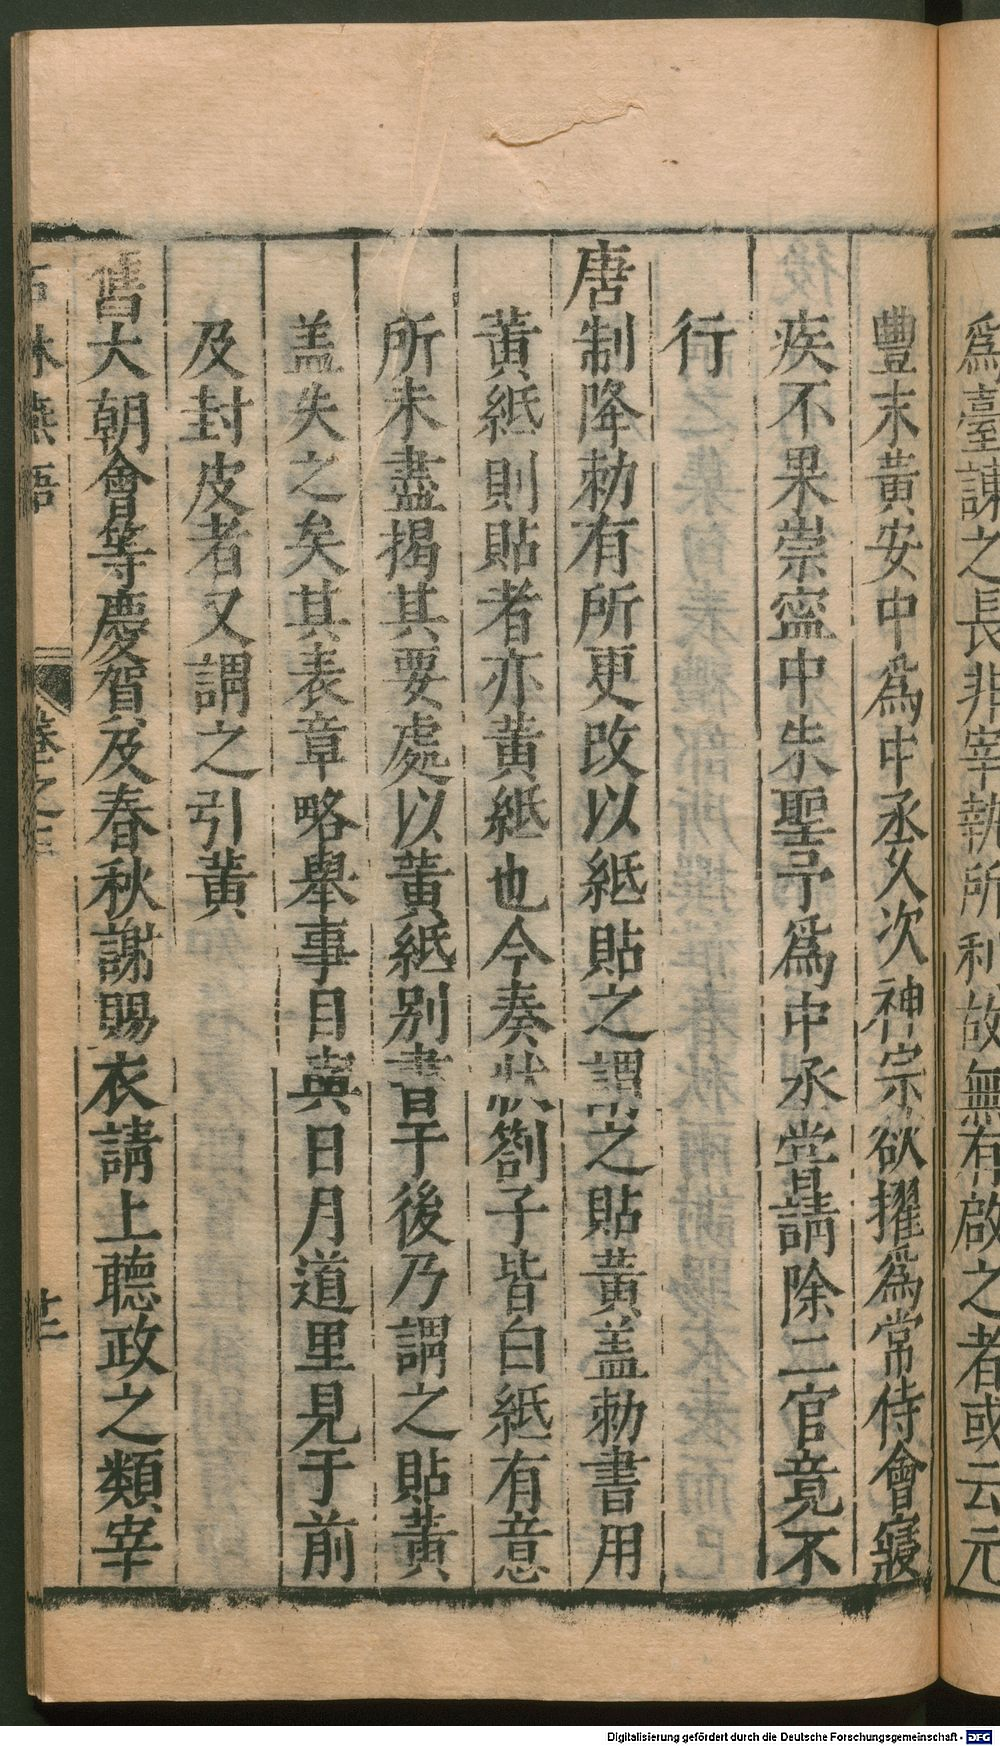 爲臺諫之長非宰執所利故無有啟之者或云元
豐末黃安中爲中丞久次神宗欲擢爲常侍會寢
疾不果崇寍中朱聖予爲中丞嘗請除二官竟不
行
唐制降勅有所更改以紙貼之謂之貼黃盖勅書用
黃紙則貼者亦黃紙也今奏狀劄子皆白紙有意
所未盡揭其要處以黃紙别書于後乃謂之貼黃
盖失之矣其表章略舉事目與日月道里見于前
及封皮者又謂之引黃
舊大朝會等慶賀及春秋謝賜衣請上聽政之類宰
石林燕語 卷之三
Digitalisierung gefördert durch die Deutsche Forschungsgemeinschaft - DFG